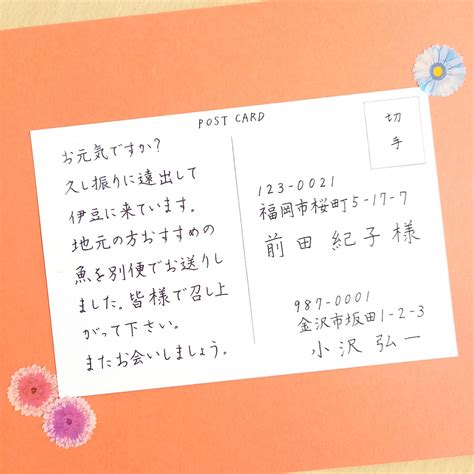 POST CARD
お元気ですか?
久し振りに遠出して
伊豆に来ています。
地元の方おすすめの
魚を別便でお送りし
ました。皆様で召し上
がって下さい。
またお会いしましょう。
切
手
123-0021
福岡市桜町5-17-7
前田紀子様
987-0001
金沢市坂田1-2-3
小沢弘一